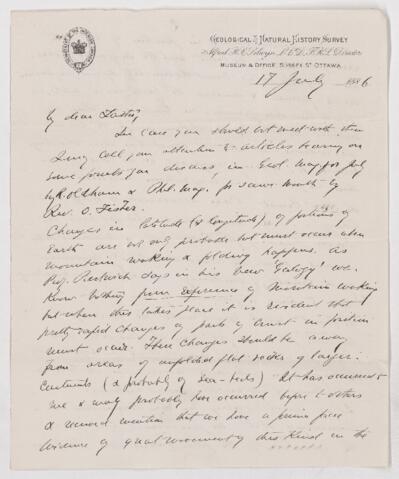 GEOLOGICAL & NATURAL HISTORY SURVEY
Alfred R. C. Selwyn, L.L.D., F.R.S., Director
MUSEUM & OFFICE, SUSSEX ST. OTTAWA
17 July 1886
My dear
In case you should not meet with them
I may call your attention to articles bearing on
some points you discuss, in Geol. Mag. for July
by R. Oldham & Phil. Mag. for same month by
Rev. O. Fisher.
Changes in latitude (& longitude) of portions of
Earth are not only probable but must occur when
mountain making & folding happens. As
Prof. Prestwich says in his new 'Geology' we
know nothing from experience of mountain making
but when this takes place it is evident that
pretty rapid changes of parts of crust in position
must occur. These changes should be away
from areas of unfolded flat rocks of larger
Continents (& probably of sea-beds) It has occurred to
me & may probably have occurred before to others
& mention that we have a prima facie
evidence of movement of this kind in the